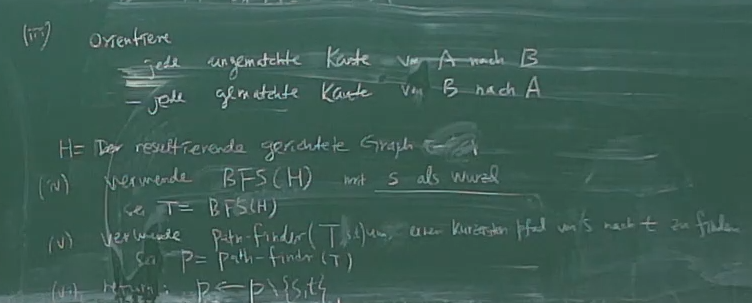 (iii) Orientiere
- jede ungematchte Kante von A nach B
- jede gematchte Kante von B nach A
H = Der resultierende gerichtete Graph
(iv) verwende BFS(H) mit s als wurzel
sei T = BFS(H)
(v) verwende Path-finder(T, s,t) um einen kürzesten pfad von s nach t zu finden
sei P = path-finder (T)
(vi) return: P ← P \ {s,t}